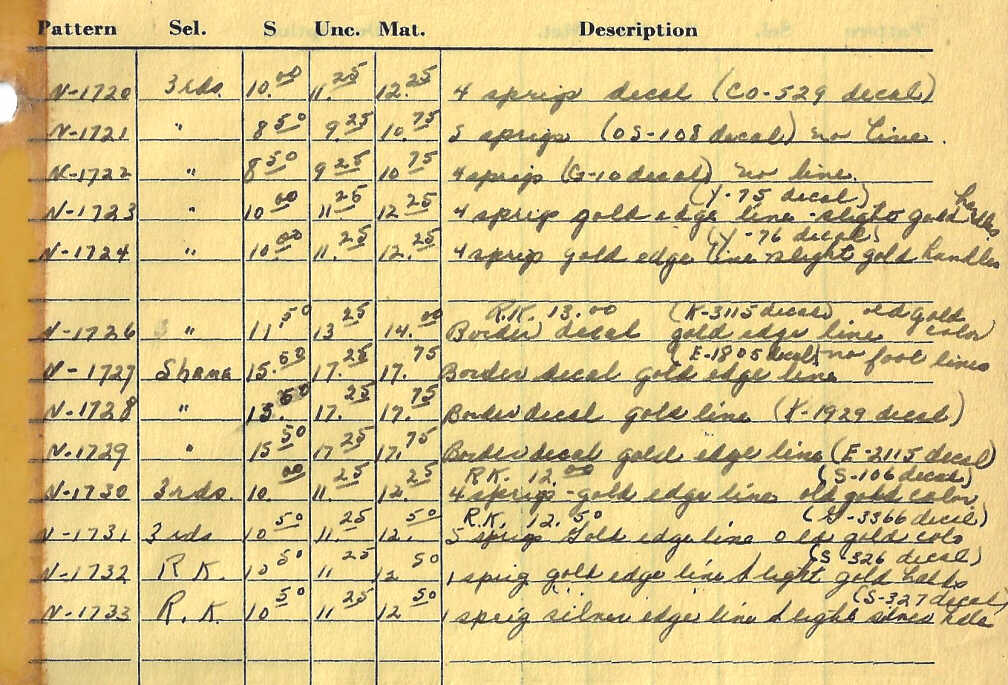 Pattern Sel. S Unc. Mat. Description
N-1720 3rds. 10.00 11.25 12.25 4 sprigs decal (CO-529 decal)
N-1721 " 8 50 9.25 10 75 5 sprigs (OS-108 decal) no line.
N-1722 " 8 50 9 25 10 75 4 sprigs (G-10 decal) no line.
(Y-75 decal)
N-1723 " 10 00 11 25 12 25 4 sprigs gold edge line - slight gold handles
(Y-76 decal)
N-1724 " 10 00 11.25 12.25 4 sprigs gold edge line slight gold handles
R.K. 13.00 (K-3115 decal) old gold
N-1726 " 11.50 13 25 14.00 Border decal gold edge line color
(E-1805 decal) no foot lines
N-1727 Shema 15.50 17.25 17.75 Border decal gold edge line
N-1728 " 15.50 17.25 17.75 Border decal gold line (X-1929 decal)
N-1729 " 15 50 17 25 17.75 Border decal gold edge line (E-2115 decal)
R.K. 12.00 (S-106 decal)
N-1730 3rds. 10.00 11.25 12.25 4 sprigs - gold edge line old gold color
R.K. 12.50 (-3366 decal)
N-1731 3rds 10 50 11.25 12.50 5 sprigs Gold edge line old gold colo
(S-326 decal)
N-1732 R K. 10 50 11 25 12 50 1 sprig gold edge line slight gold
(S-327 decal)
N-1733 R. K 10 50 11 25 12 50 1 sprig silver edge line slight silver hdls